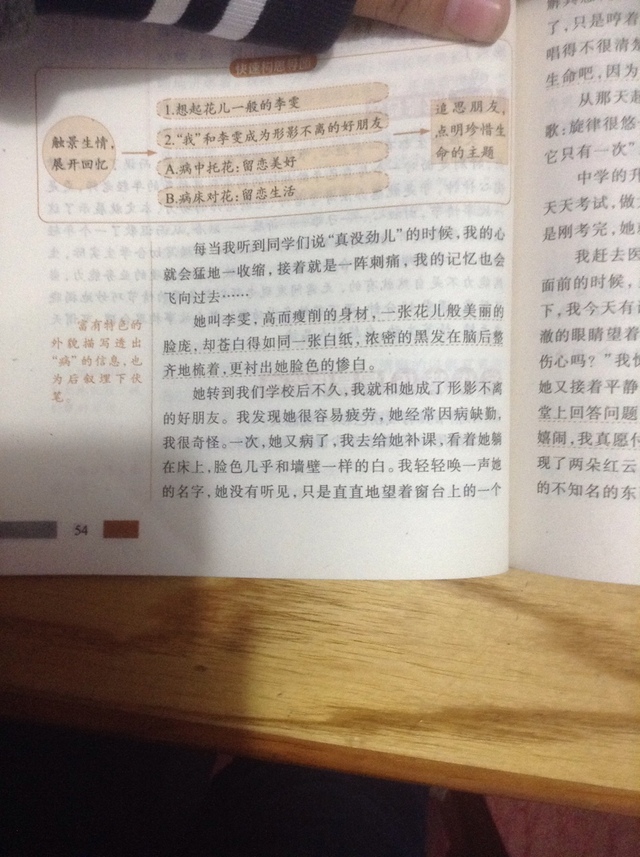 快速构思导图
触景生情，
展开回忆
1.想起花儿一般的李雯
2.“我”和李雯成为形影不离的好朋友
A.病中托花：留恋美好
B.病床对花：留恋生活
追思朋友，
点明珍惜生
命的主题
每当我听到同学们说“真没劲儿”的时候，我的心
就会猛地一收缩，接着就是一阵刺痛，我的记忆也会
飞向过去……
她叫李雯，高而瘦削的身材，一张花儿般美丽的
脸庞，却苍白得如同一张白纸，浓密的黑发在脑后整
齐地梳着，更衬出她脸色的惨白。
她转到我们学校后不久，我就和她成了形影不离
的好朋友。我发现她很容易疲劳，她经常因病缺勤，
我很奇怪。一次，她又病了，我去给她补课，看着她躺
在床上，脸色几乎和墙壁一样的白。我轻轻唤一声她
的名字，她没有听见，只是直直地望着窗台上的一个
富有特色的
外貌描写透出
“病”的信息，也
为后叙埋下伏
笔。
54
了，只是哼着
唱得不很清楚
生命吧，因为
从那天起
歌：旋律很悠
它只有一次”
中学的升
天天考试，做
是刚考完，她
我赶去医
面前的时候，
下，我今天有
澈的眼睛望着
伤心吗？”我
她又接着平静
堂上回答问题
嬉闹，我真愿付
现了两朵红云
的不知名的东